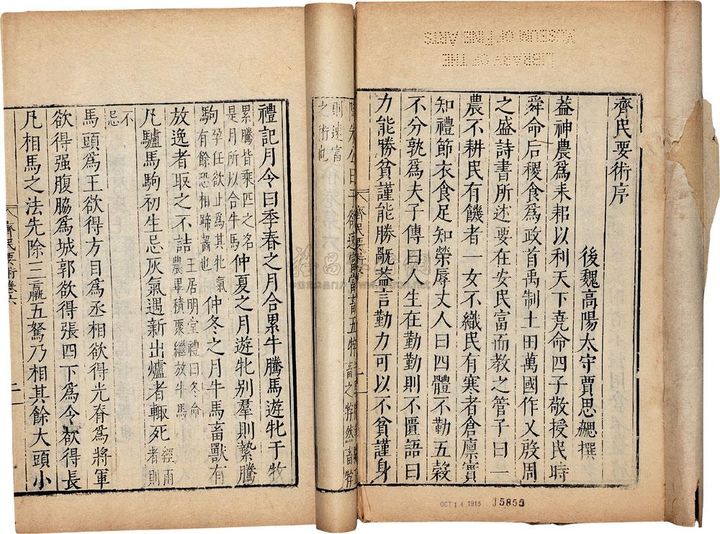 LIBRARY OF THE
MUSEUM OF FINE ARTS
齊民要術序
後魏高陽太守賈思勰撰
葢神農爲耒耜以利天下堯命四子敬授民時
舜命后稷食爲政首禹制土田萬國作乂殷周
之盛詩書所述要在安民富而教之管子曰一
農不耕民有饑者一女不織民有寒者倉廩實
知禮節衣食足知榮辱丈人曰四體不勤五穀
不分孰爲夫子傳曰人生在勤勤則不匱語曰
力能勝貧謹能勝旤葢言勤力可以不貧謹身
OCT 14 1915
15855
則速富
之術也
禮記月令曰季春之月合累牛騰馬遊牝于牧
累騰皆乘匹之名是月所以合牛馬仲夏之月遊牝别羣則縶騰
駒孕任欲止爲其牝氣有餘恐相蹄齧也仲冬之月牛馬畜獸有
放逸者取之不詰王居明堂禮曰冬命農畢積聚繼放牛馬
凡驢馬駒初生忌灰氣遇新出爐者輒死經雨者則
不忌
馬頭爲王欲得方目爲丞相欲得光脊爲將軍
欲得强腹脇爲城郭欲得張四下爲令欲得長
凡相馬之法先除三羸五駑乃相其餘大頭小
齊民要術卷六